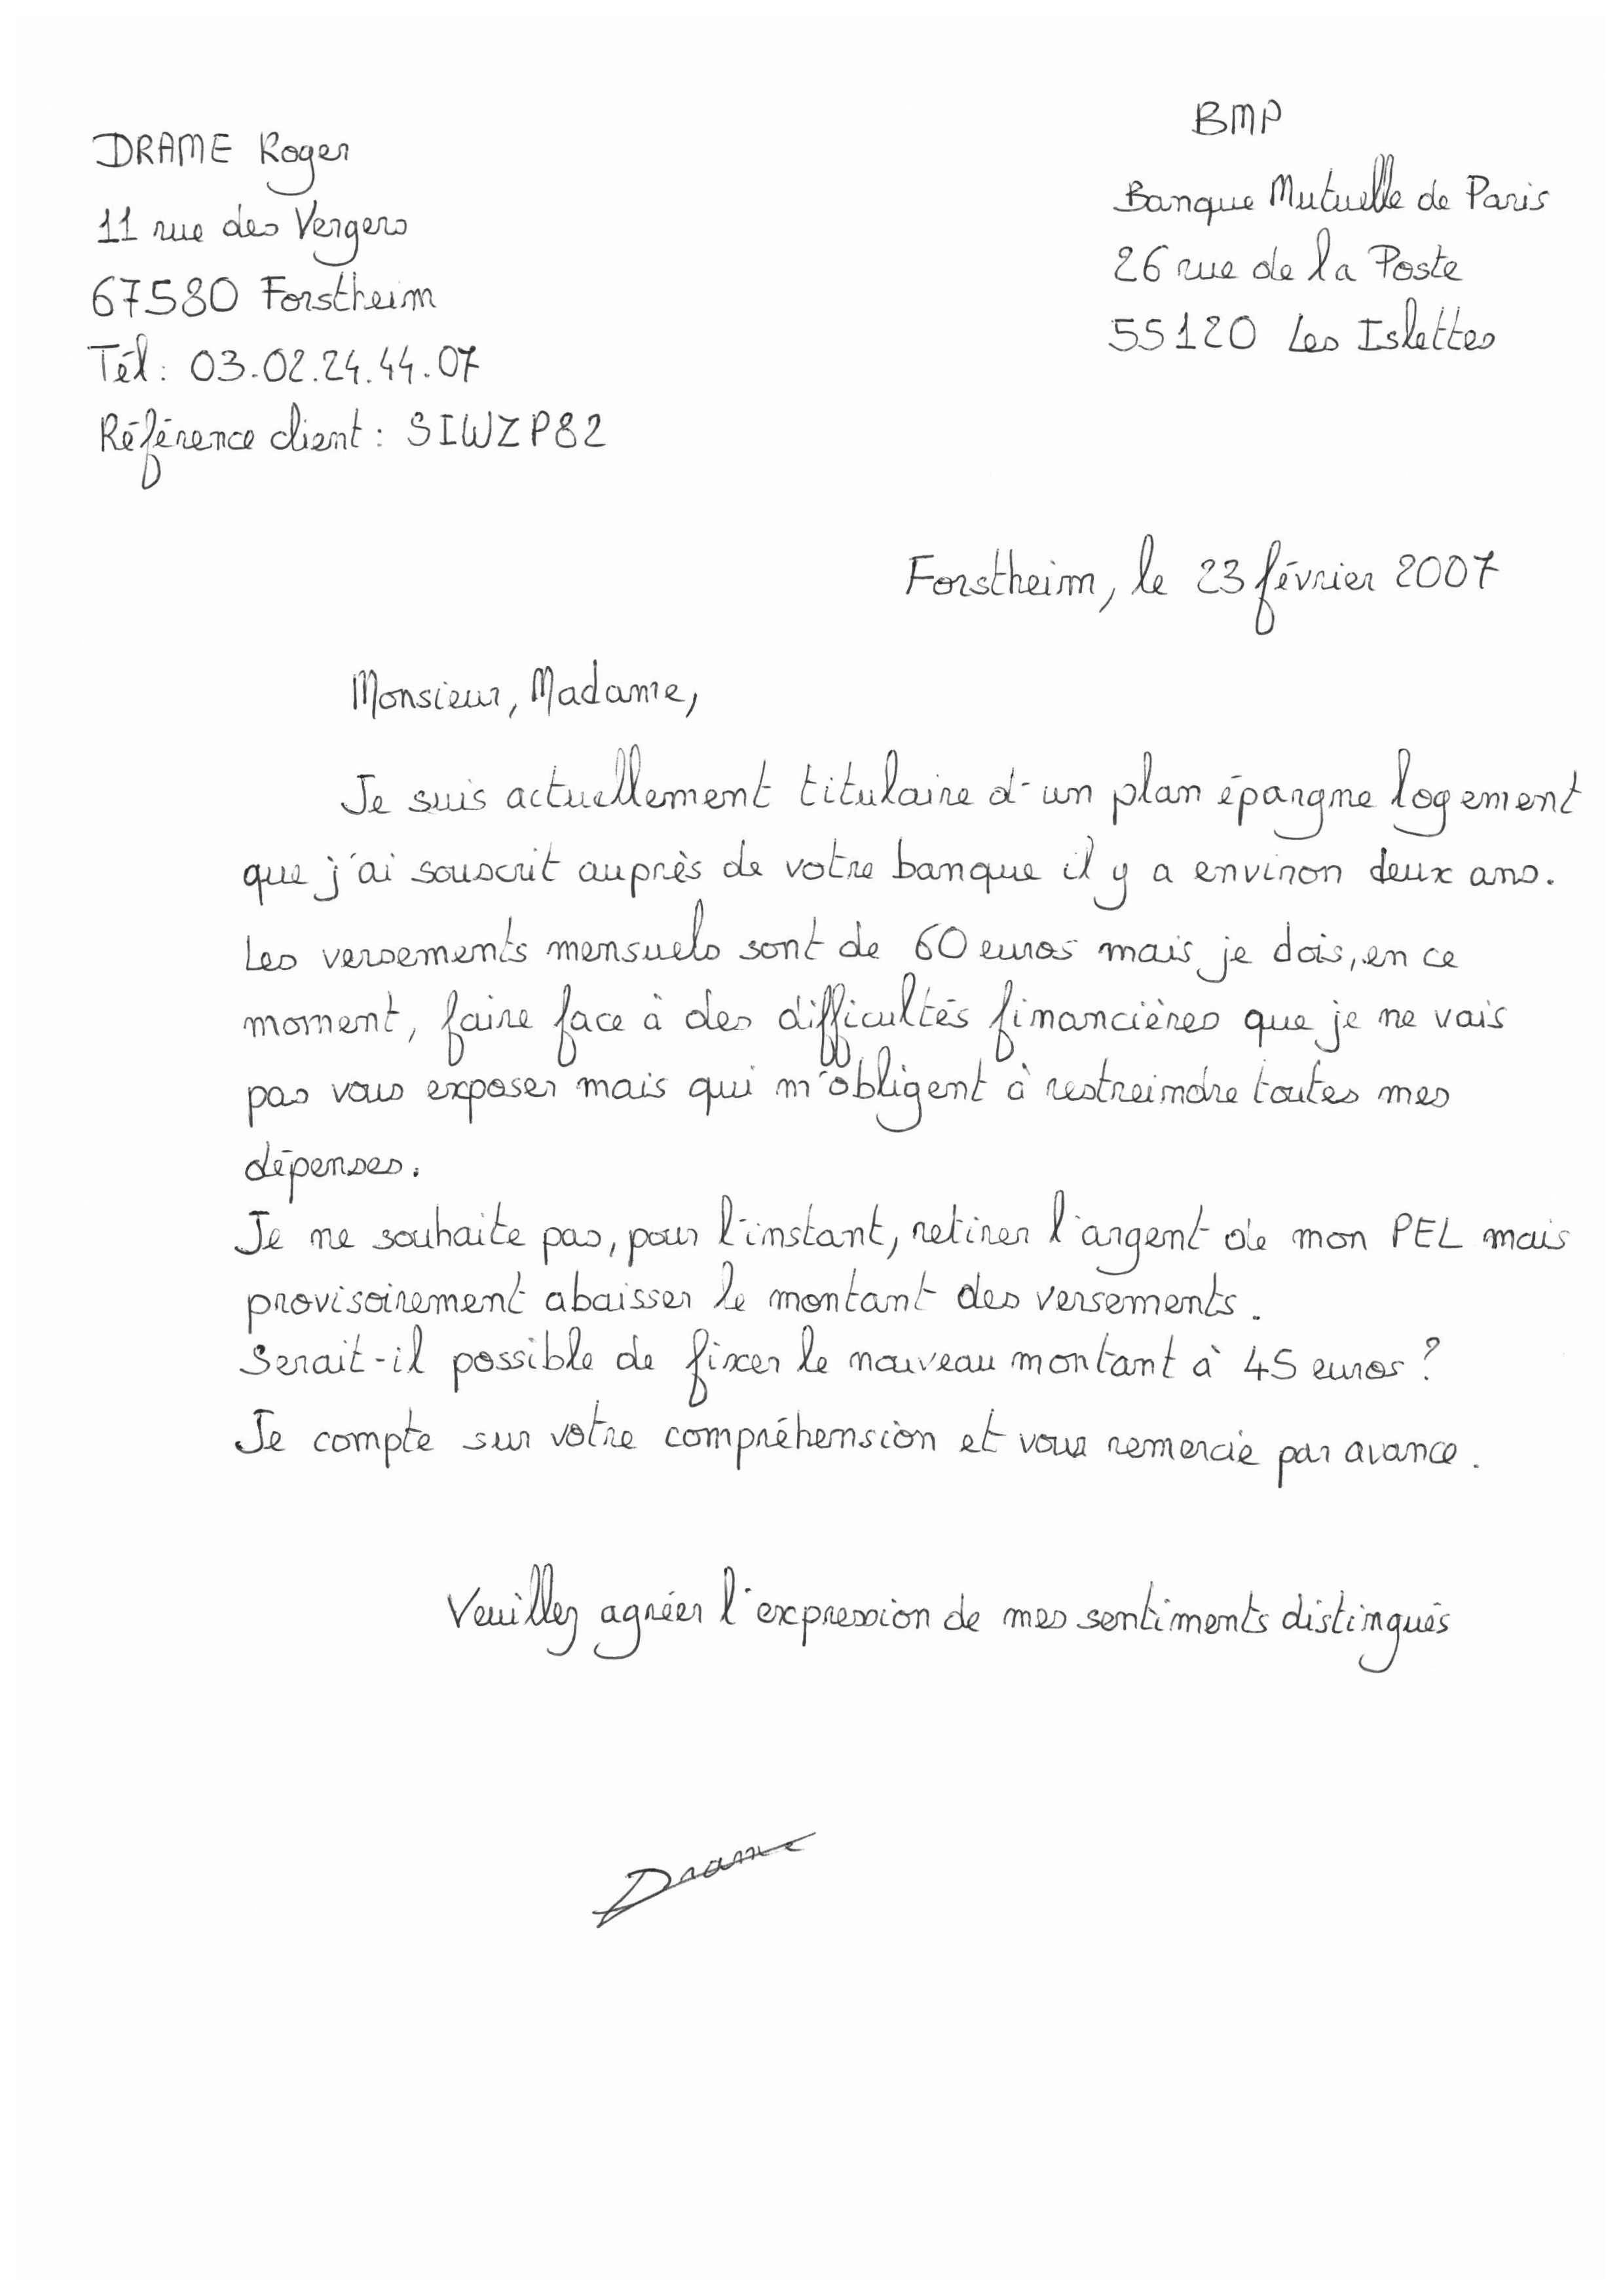 DRAME Roger
11 rue des Vergers
67580 Forstheim
Tél: 03.02.24.44.07
Référence client: SIWZP82
BMP
Banque Mutuelle de Paris
26 rue de la Poste
55120 Les Islettes
Forstheim, le 23 février 2007
Monsieur, Madame,
Je suis actuellement titulaire d'un plan épargne logement
que j'ai souscrit auprès de votre banque il y a environ deux ans.
Les versements mensuels sont de 60 euros mais je dois, en ce
moment, faire face à des difficultés financières que je ne vais
pas vous exposer mais qui m'obligent à restreindre toutes mes
dépenses.
Je ne souhaite pas, pour l'instant, retirer l'argent de mon PEL mais
provisoirement abaisser le montant des versements.
Serait-il possible de fixer le nouveau montant à 45 euros ?
Je compte sur votre compréhension et vous remercie par avance.
Veuillez agréer l'expression de mes sentiments distingués
Drame